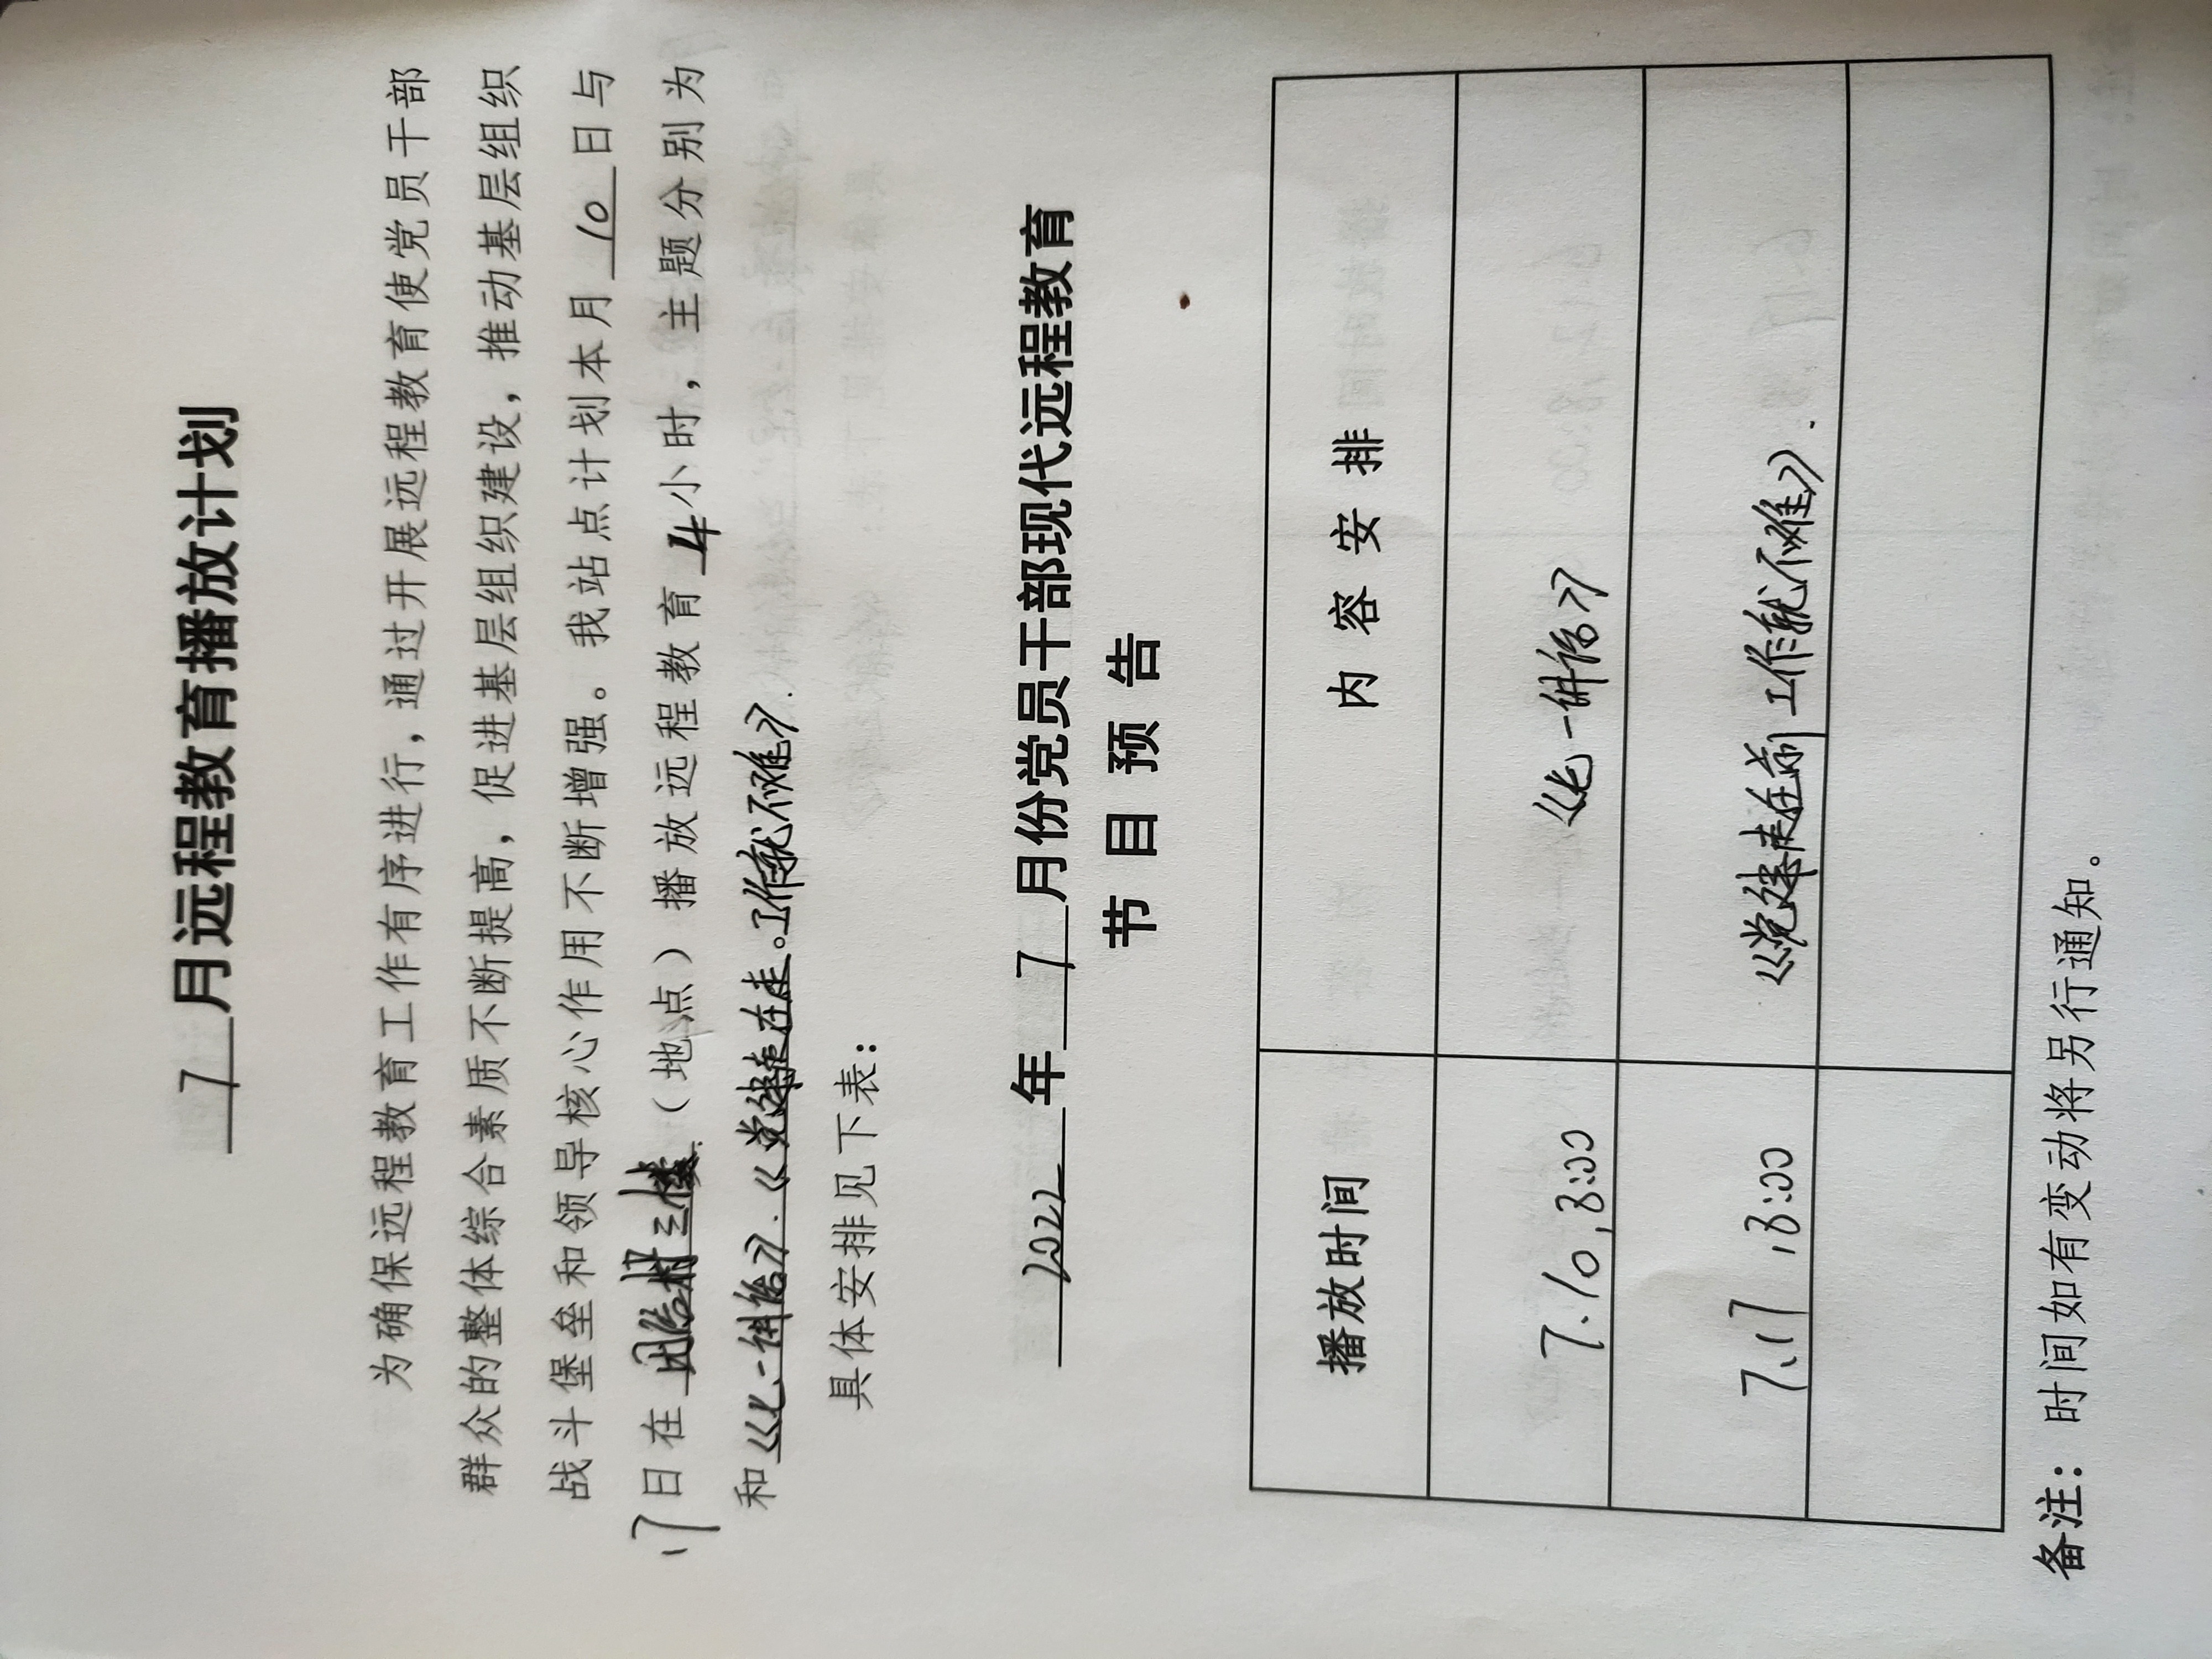 7月远程教育播放计划
为确保远程教育工作有序进行，通过开展远程教育使党员干部
群众的整体综合素质不断提高，促进基层组织建设，推动基层组织
战斗堡垒和领导核心作用不断增强。我站点计划本月10日与
17日在村三楼（地点）播放远程教育4小时，主题分别为
和《七一讲话》.《党建在走。工作就不难》.
具体安排见下表：
2022年7月份党员干部现代远程教育
节目预告
播放时间 内容安排
7.10,8:00 《七一讲话》
7.17,8:00 《党建走在前工作就不难》.
备注：时间如有变动将另行通知。